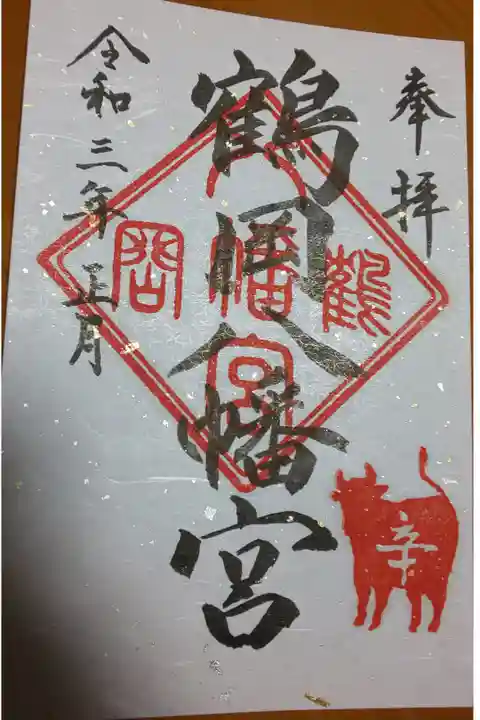 奉拝
鶴岡八幡宮
令和三年正月
鶴
岡
八
幡
宮
辛